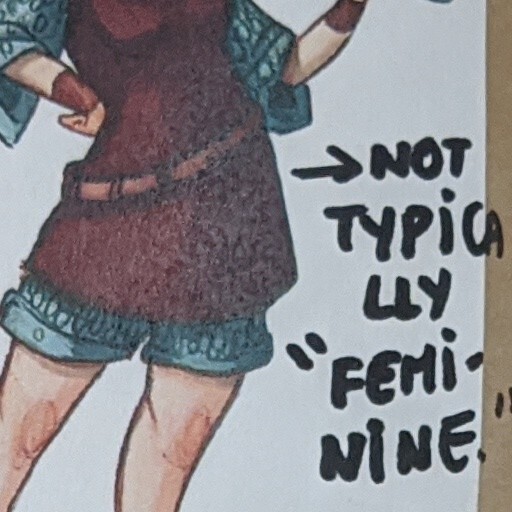 → NOT
TYPICA
LLY
"FEMI-
NINE."